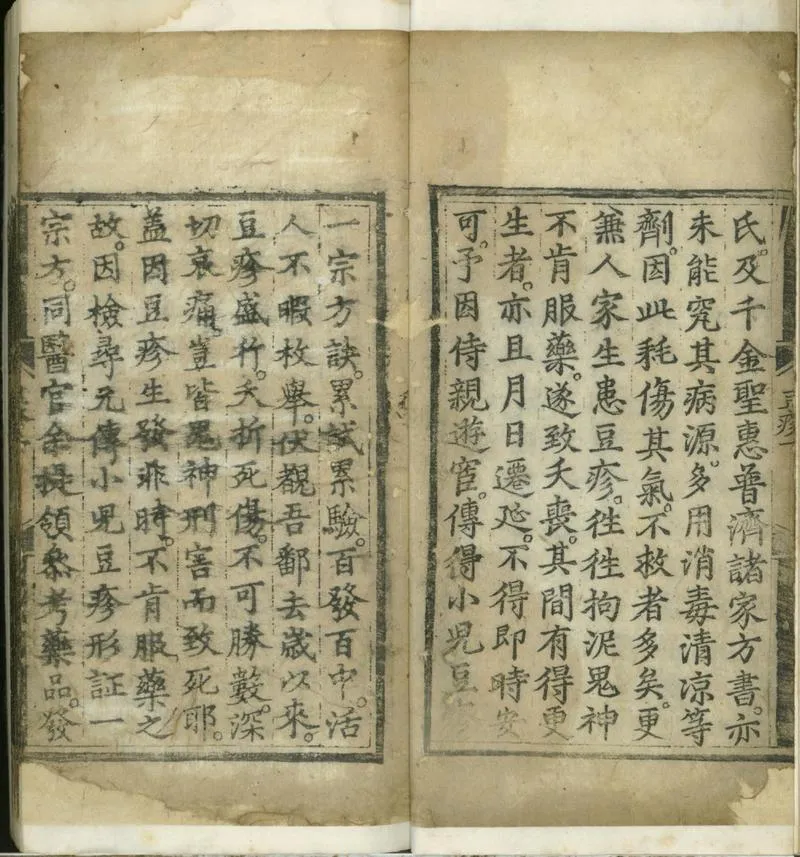 氏。及千金聖惠普濟諸家方書。亦
未能究其病源。多用消毒清凉等
劑。因此耗傷其氣。不救者多矣。更
兼人家生患豆疹。徃徃拘泥鬼神
不肯服藥。遂致夭喪。其間有得更
生者。亦且月日遷延。不得即時安
可。予因侍親遊宦。傳得小児豆
豆疹一
一宗方訣。累試累驗。百發百中。活
人不暇枚舉。伏觀吾鄱去歲以來。
豆疹盛行。夭折死傷。不可勝數。深
切哀痛。豈皆鬼神刑害而致死耶。
盖因豆疹生發非時。不肯服藥之
故。因檢尋元傳小児豆疹形証一
宗方。同醫官余提領叅考藥品。發